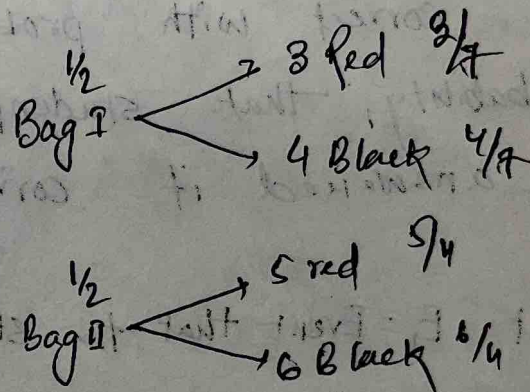 1/2
Bag I
3 Red 3/7
4 Black 4/7
1/2
Bag II
5 red 5/11
6 Black 6/11